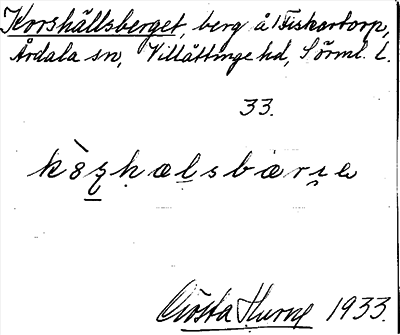 Korshällsberget, berg å Fiskartorp,
Årdala sn, Villåttinge hd, Sörml. l.
33.
Gösta Thurne 1933.